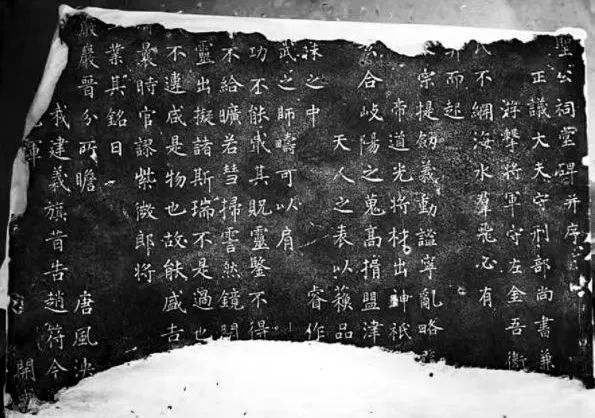 聖公祠堂碑并序
正議大夫守刑部尚書兼
游擊將軍守左金吾衛
不網海水羣飛必有
而起
宗提劔義動謐寜亂略
帝道光將材出神祇
合岐陽之蒐高揖盟津
天人之表以蘋品
昧之中睿作
武之師疇可以肩
功不能載其貺靈鑒不得
不給曠若彗掃雲然鏡明
靈出擬諸斯瑞不是過也
不違感是物也故能感吉
最時官認紫微郎將
業其銘曰
巖晉分所瞻唐風決
我建義旗昔告趙符今
暉開